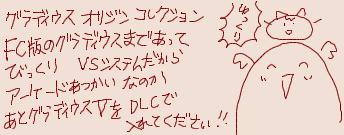 グラディウス オリジン コレクション
FC版のグラディウスまであって
びっくり VSシステムだから
アーケードあつかいなのか
あとグラディウスVをDLCで
入れてください!!
ゆっくり